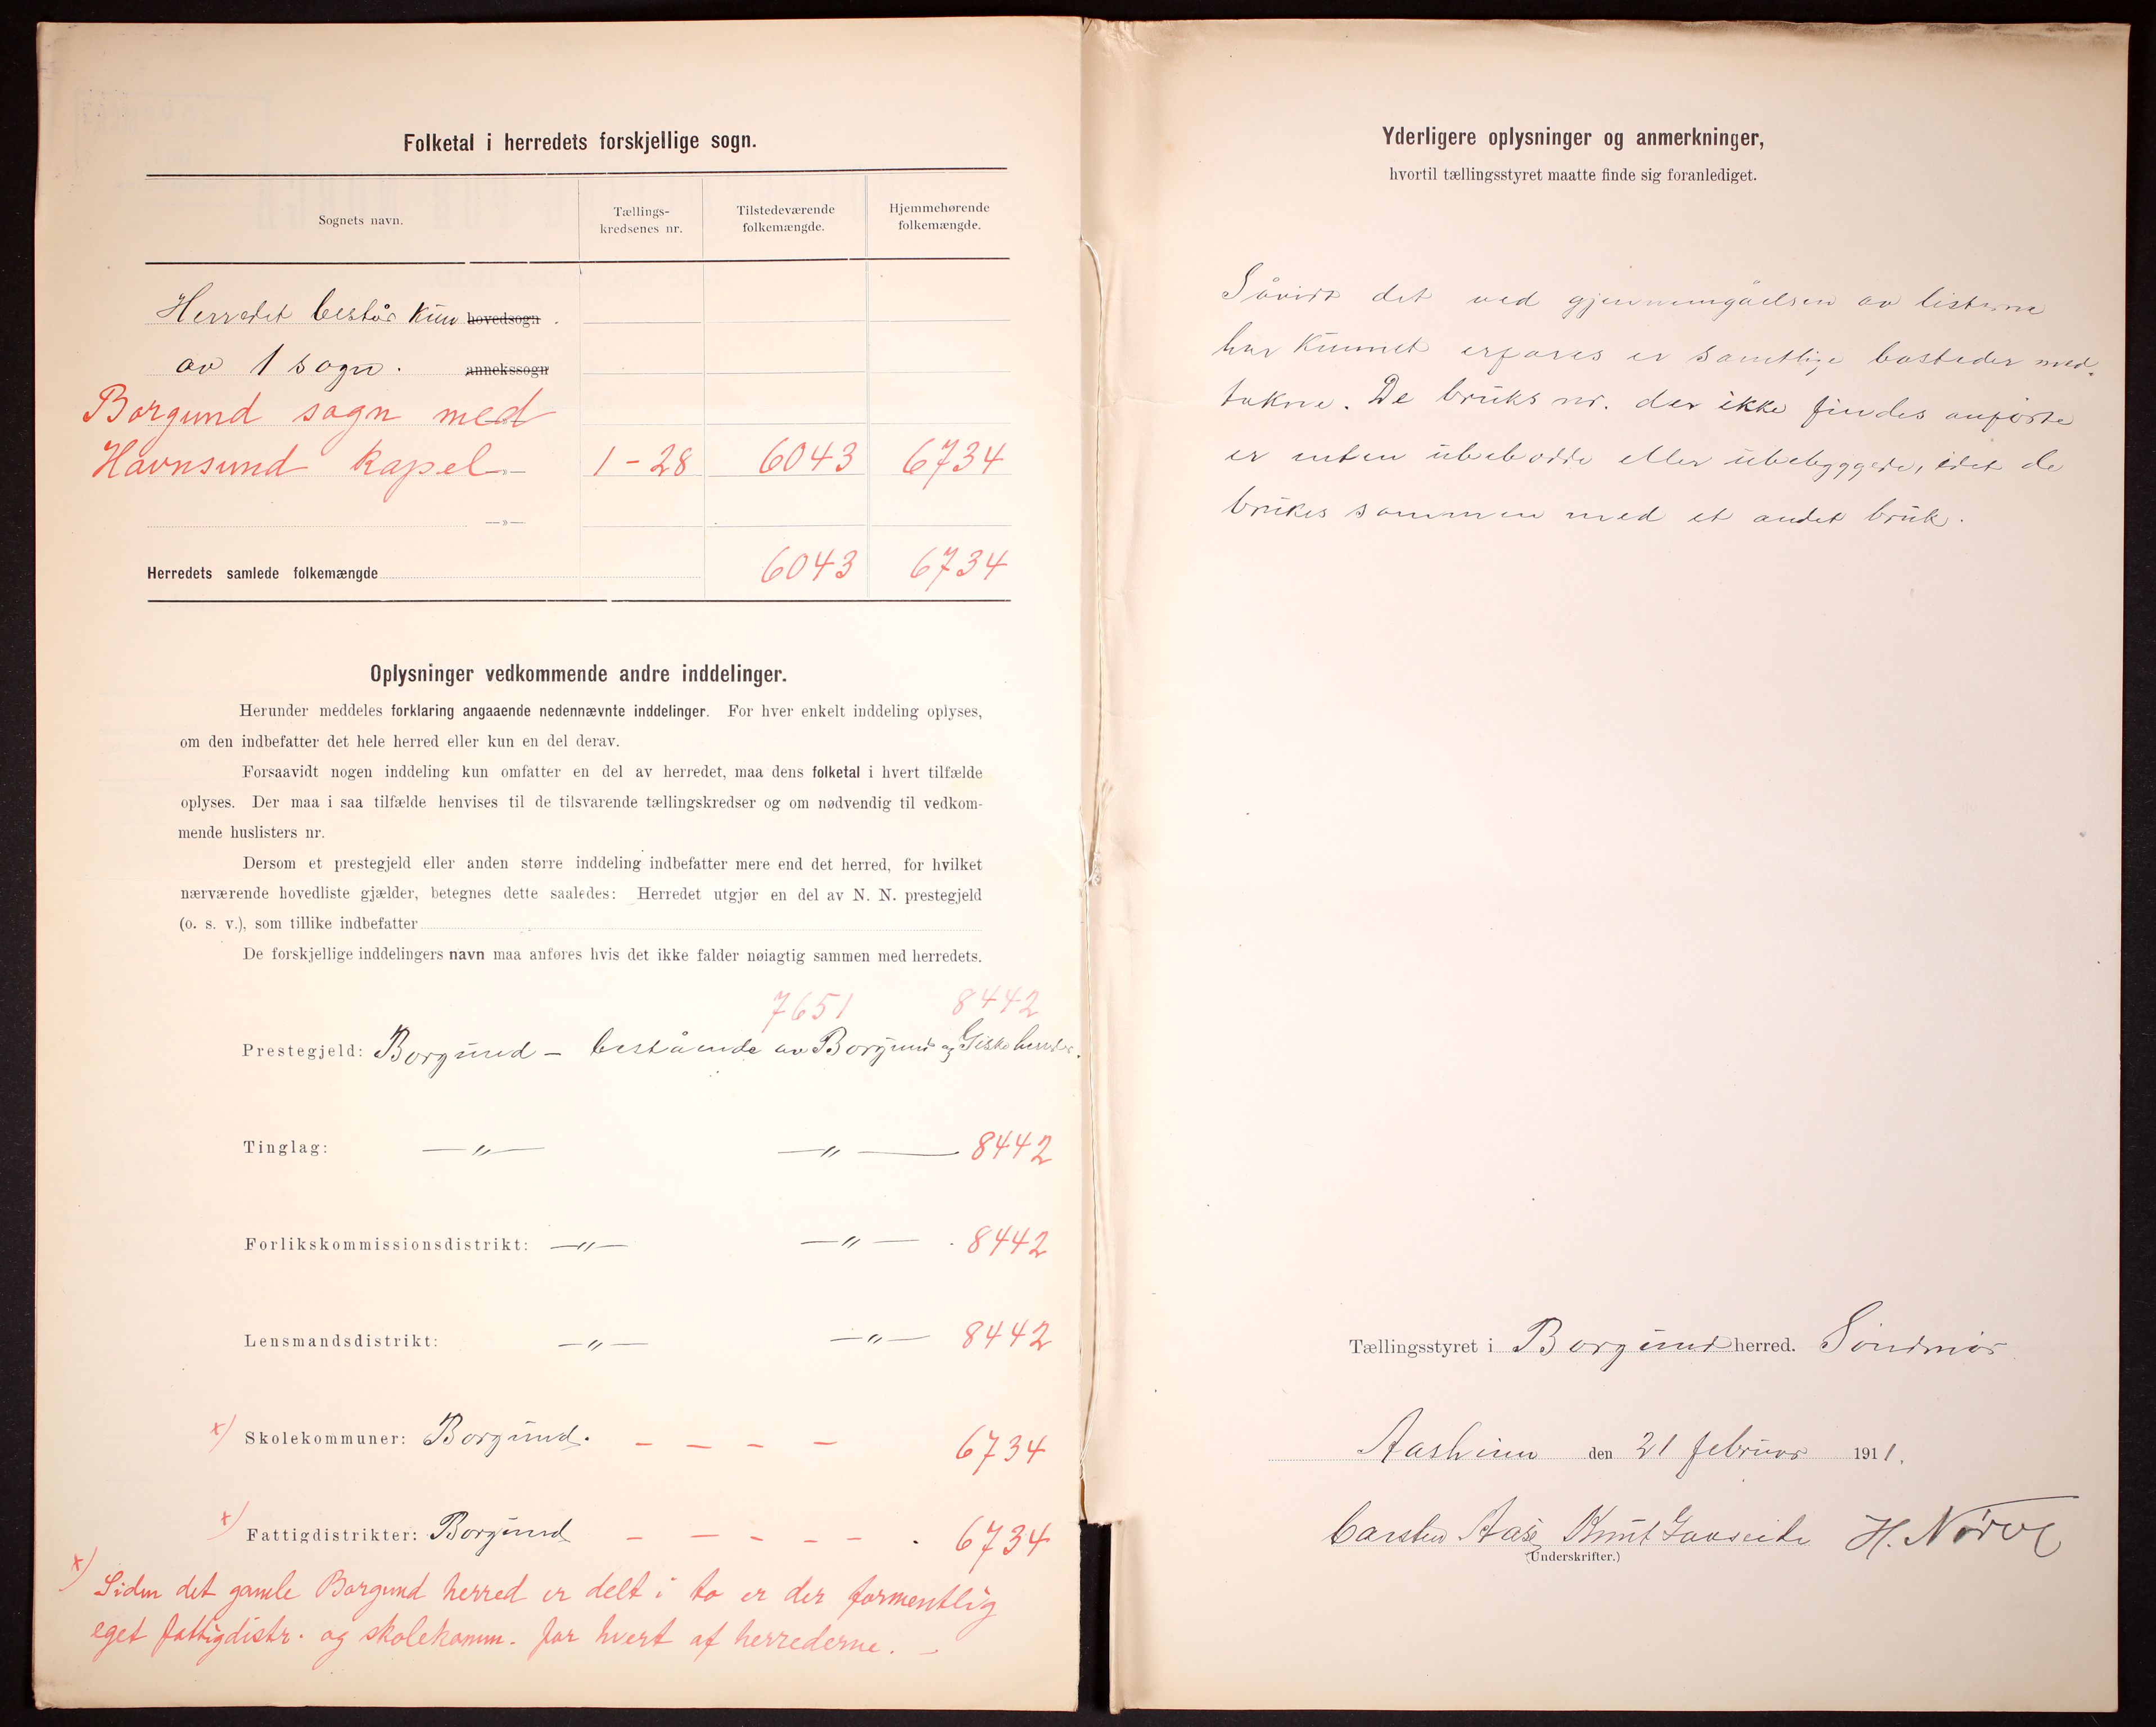 Folketal i herredets forskjellige sogn.
Sognets navn.
Tællings-
kredsenes nr.
Tilstedeværende
folkemængde.
Hjemmehørende
folkemængde.
Herredet består kun hovedsogn.
av 1 sogn. annekssogn
Borgund sogn med
Havnsund kapel -»- 1-28 6043 6734
-»-
Herredets samlede folkemængde 6043 6734
Oplysninger vedkommende andre inddelinger.
Herunder meddeles forklaring angaaende nedennævnte inddelinger. For hver enkelt inddeling oplyses,
om den indbefatter det hele herred eller kun en del derav.
Forsaavidt nogen inddeling kun omfatter en del av herredet, maa dens folketal i hvert tilfælde
oplyses. Der maa i saa tilfælde henvises til de tilsvarende tællingskredser og om nødvendig til vedkom-
mende huslisters nr.
Dersom et prestegjeld eller anden større inddeling indbefatter mere end det herred, for hvilket
nærværende hovedliste gjælder, betegnes dette saaledes: Herredet utgjør en del av N. N. prestegjeld
(o. s. v.), som tillike indbefatter
De forskjellige inddelingers navn maa anføres hvis det ikke falder nøiagtig sammen med herredets.
7651 8442
Prestegjeld: Borgund - bestående av Borgund og Giske herreder.
Tinglag: —"— —"— 8442
Forlikskommissionsdistrikt: —"— —"— . 8442
Lensmandsdistrikt: —"— —"— 8442
x) Skolekommuner: Borgund. - - - - 6734
x) Fattigdistrikter: Borgund - - - - - . 6734
x) Siden det gamle Borgund herred er delt i to er der formentlig
eget fattigdistr. og skolekomm. for hvert af herrederne. -
Yderligere oplysninger og anmerkninger,
hvortil tællingsstyret maatte finde sig foranlediget.
Såvidt det ved gjennemgåelsen av listerne
har kunnet erfares er samtlige bosteder med-
takne. De bruks nr. der ikke findes anførte
er enten ubebodde eller ubebyggede, idet de
brukes sammen med et andet bruk.
Tællingsstyret i Borgund herred. Søndmør
Aasheim den 21 februar 1911.
Carsten Aase Knut Gaaseide H. Nørve
(Underskrifter.)